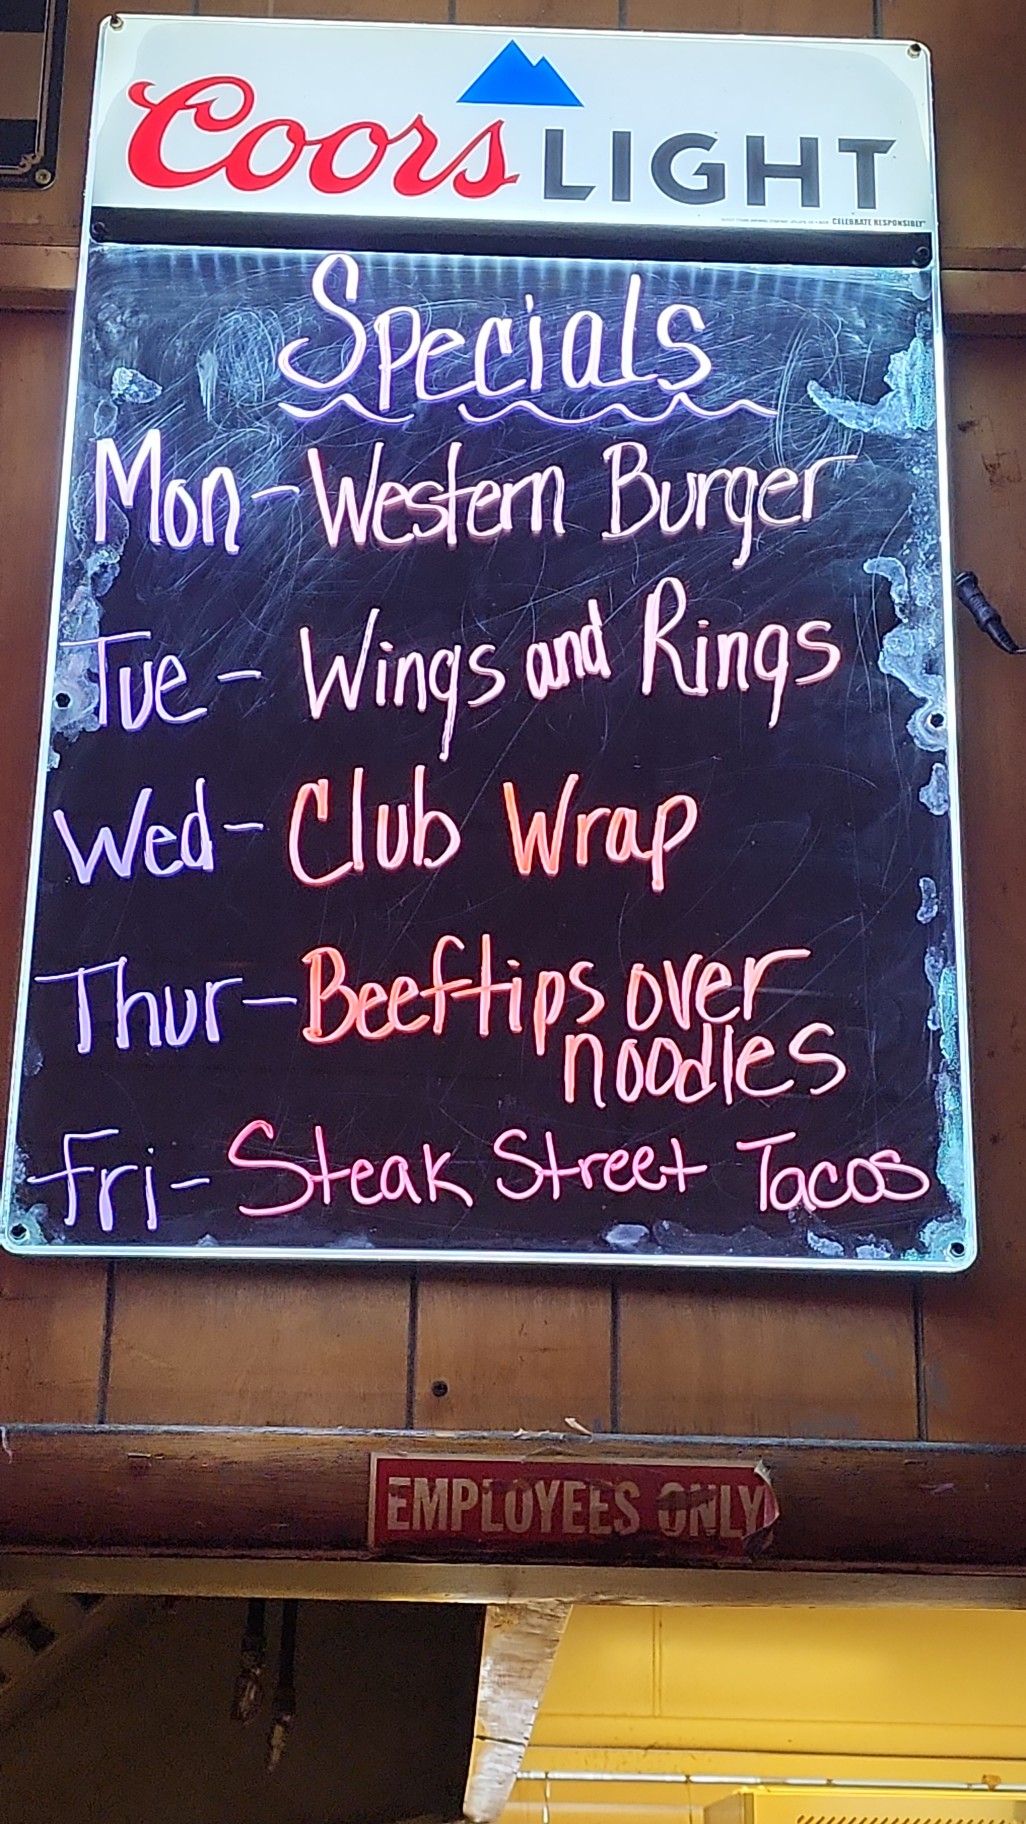 Coors LIGHT
CELEBRATE RESPONSIBLY
Specials
Mon - Western Burger
Tue - Wings and Rings
Wed - Club Wrap
Thur - Beeftips over
noodles
Fri - Steak Street Tacos
EMPLOYEES ONLY